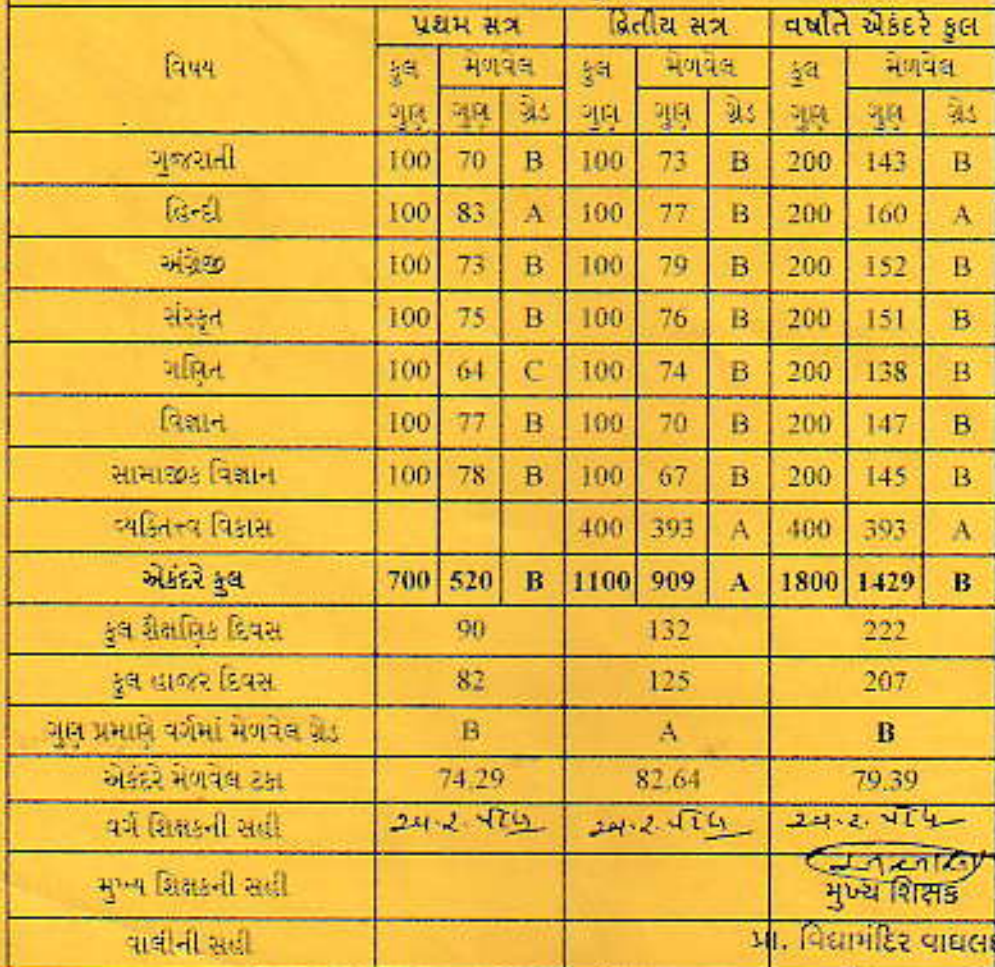 પ્રથમ સત્ર દ્વિતીય સત્ર વર્ષાંતે એકંદરે કુલ
વિષય કુલ મેળવેલ કુલ મેળવેલ કુલ મેળવેલ
ગુણ ગુણ ગ્રેડ ગુણ ગુણ ગ્રેડ ગુણ ગુણ ગ્રેડ
ગુજરાતી 100 70 B 100 73 B 200 143 B
હિન્દી 100 83 A 100 77 B 200 160 A
અંગ્રેજી 100 73 B 100 79 B 200 152 B
સંસ્કૃત 100 75 B 100 76 B 200 151 B
ગણિત 100 64 C 100 74 B 200 138 B
વિજ્ઞાન 100 77 B 100 70 B 200 147 B
સામાજીક વિજ્ઞાન 100 78 B 100 67 B 200 145 B
વ્યક્તિત્ત્વ વિકાસ 400 393 A 400 393 A
એકંદરે કુલ 700 520 B 1100 909 A 1800 1429 B
કુલ શૈક્ષણિક દિવસ 90 132 222
કુલ હાજર દિવસ 82 125 207
ગુણ પ્રમાણે વર્ગમાં મેળવેલ ગ્રેડ B A B
એકંદરે મેળવેલ ટકા 74.29 82.64 79.39
વર્ગ શિક્ષકની સહી
મુખ્ય શિક્ષકની સહી મુખ્ય શિક્ષક
વાલીની સહી પ્રા. વિદ્યામંદિર